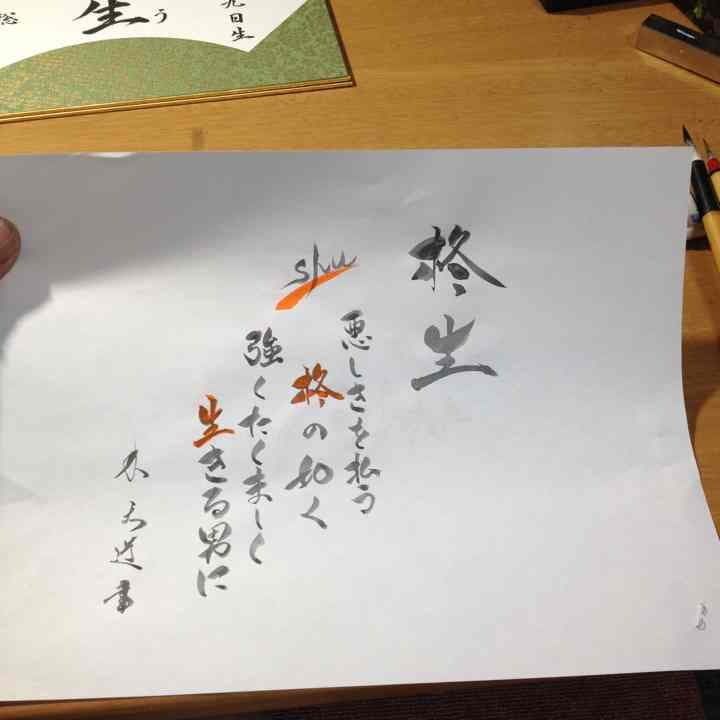 柊生
shu
悪しきを払う
柊の如く
強くたくましく
生きる男に
生
う
九日生